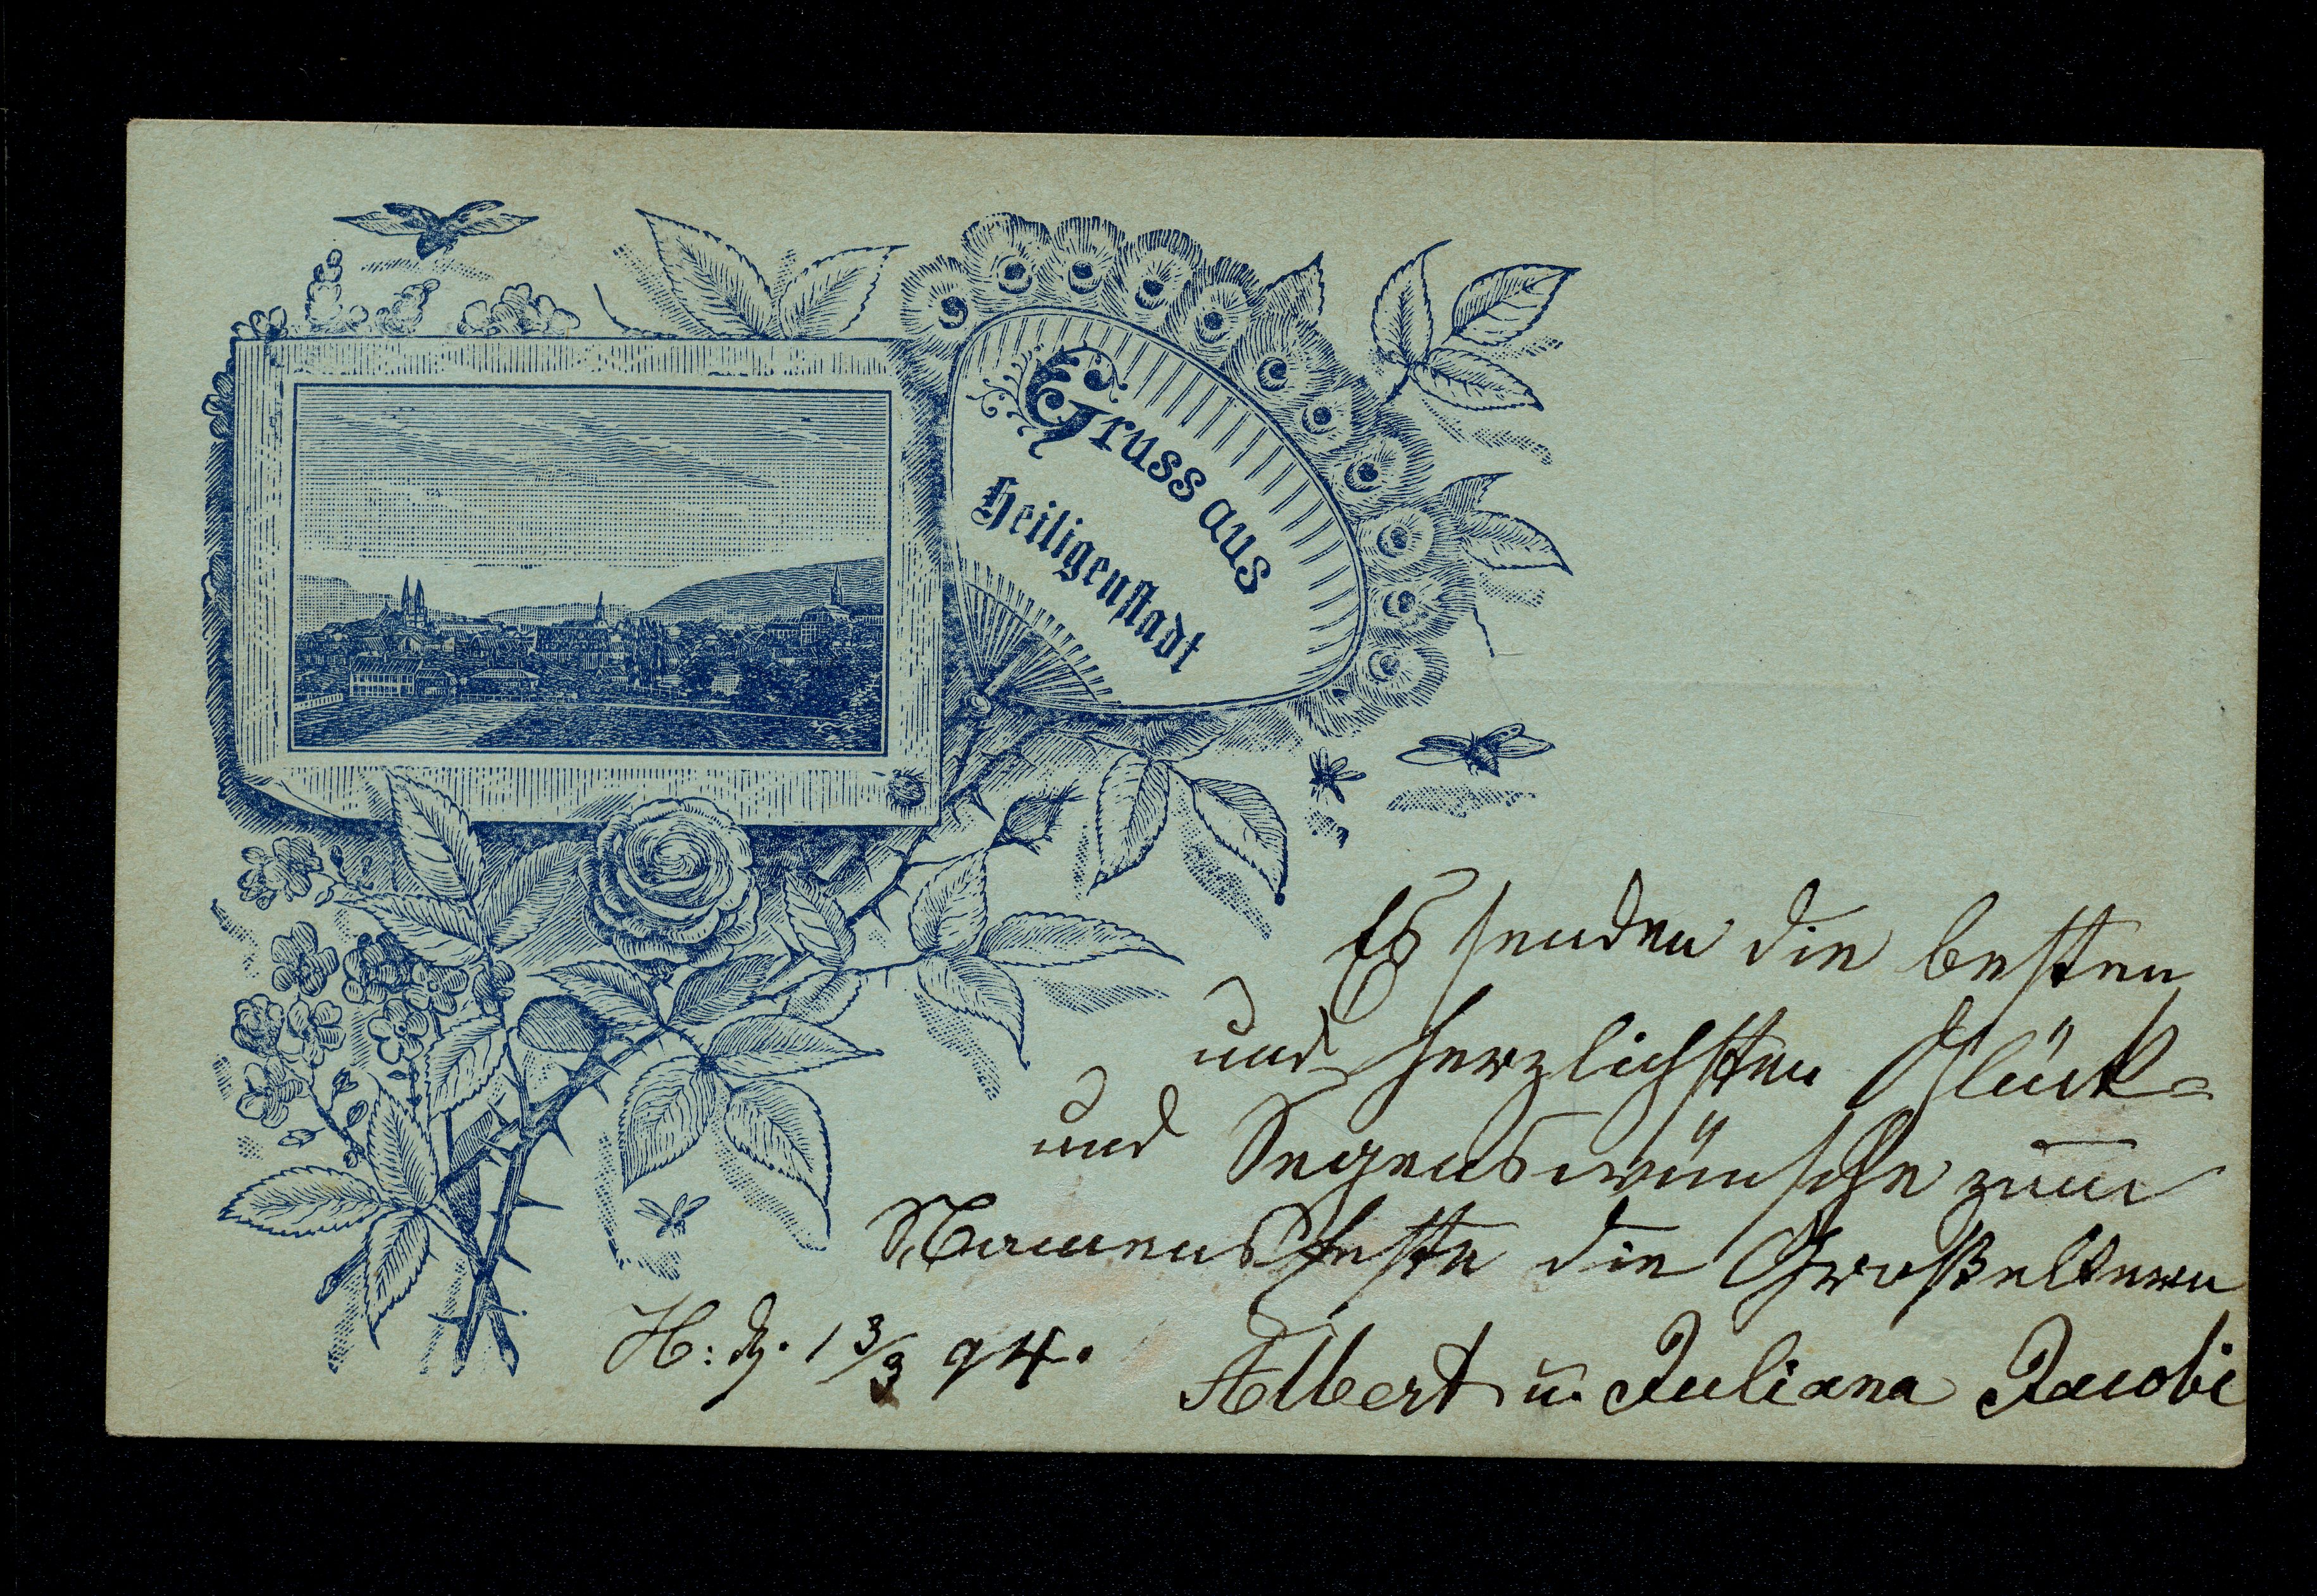 Gruss aus
Heiligenstadt
Es senden die besten
und herzlichsten Glück=
und Segenswünsche zum
Namensfeste die Großeltern
H: d. 13/3 94.
Albert u. Juliana Jacobi